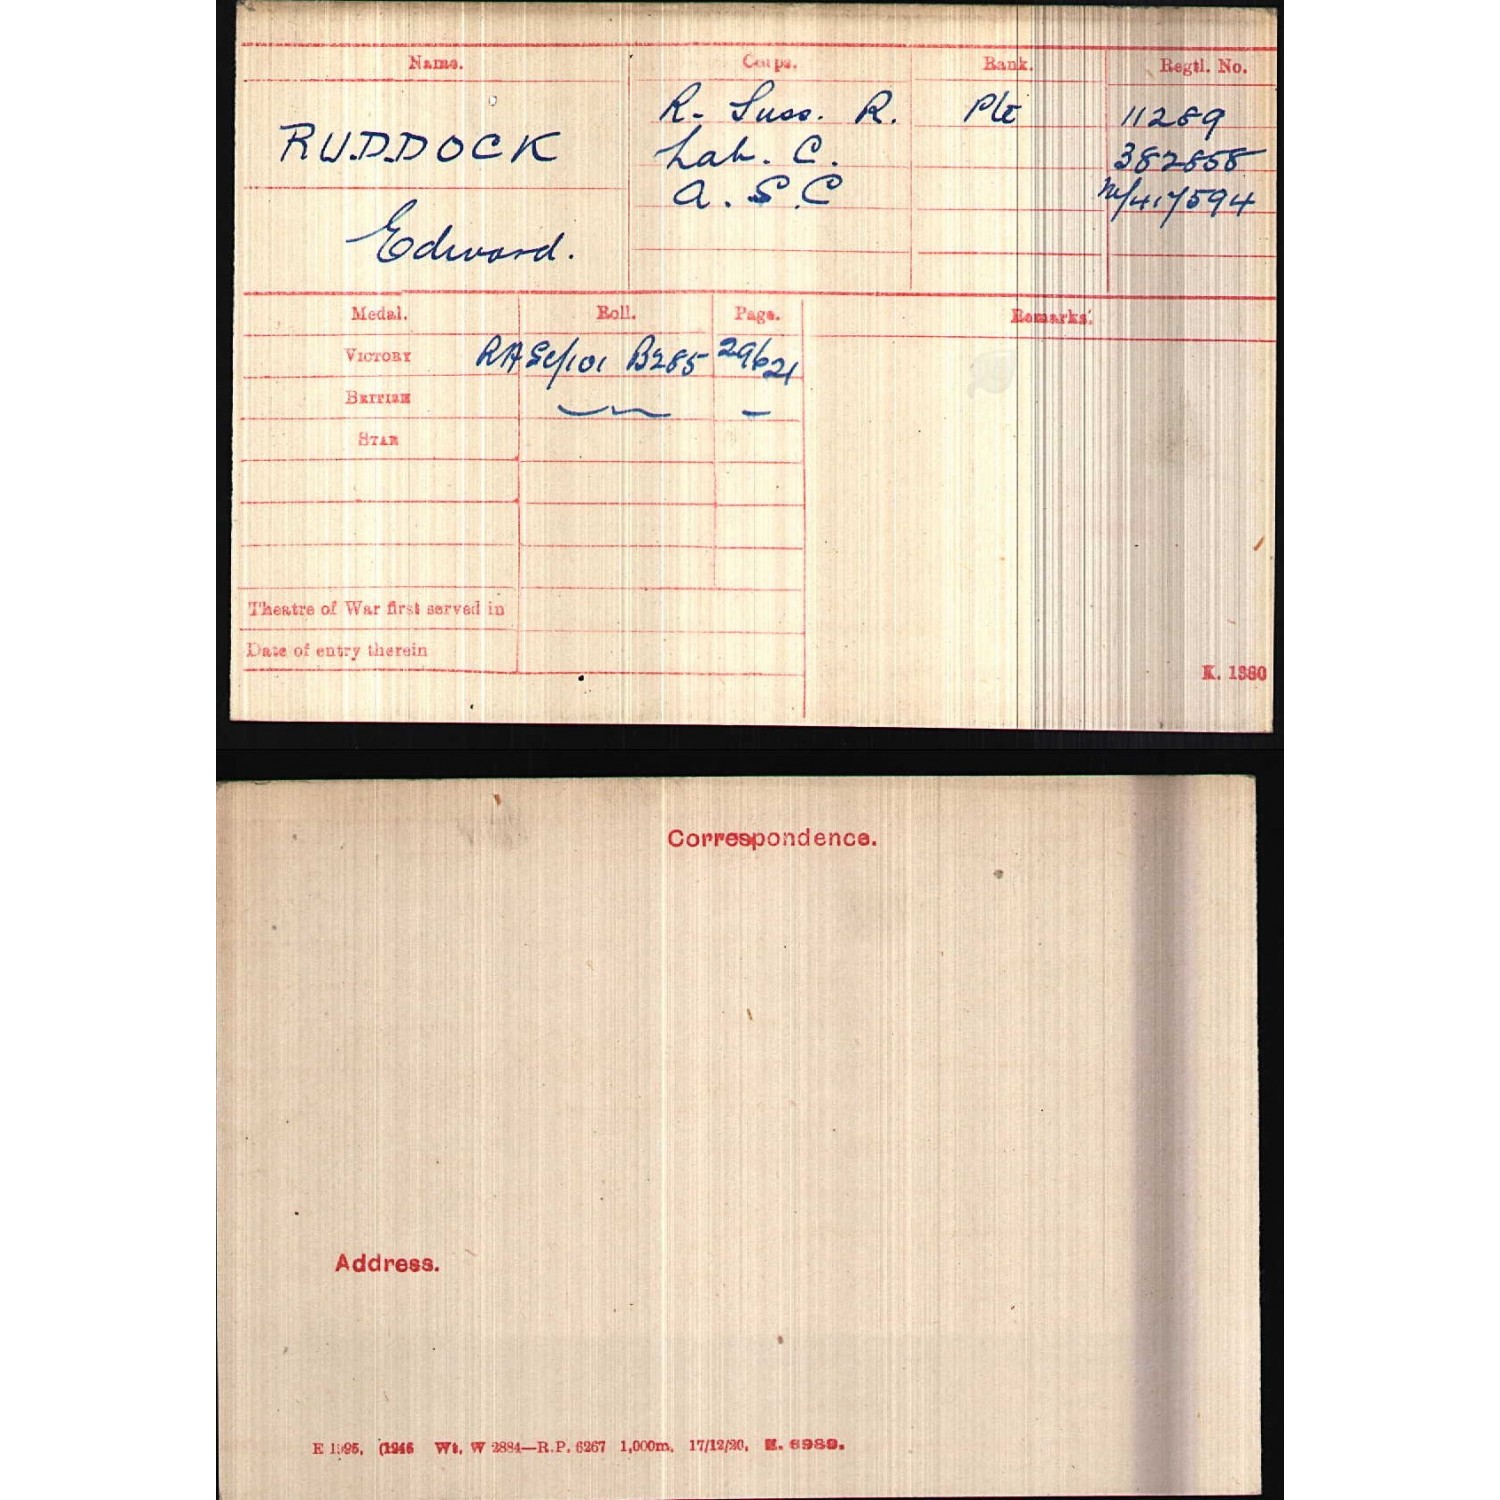 Name. Corps. Rank. Regtl. No.
RUDDOCK R. Suss. R. Pte 11269
Lab. C. 382858
Edward. A. S. C M/417594
Medal. Roll. Page. Remarks.
VICTORY RASC/101 B285 29621
BRITISH
STAR
Theatre of War first served in
Date of entry therein
K. 1380
Correspondence.
Address.
Wt. W 2884—R.P. 6267 1,000m. 17/12/20.